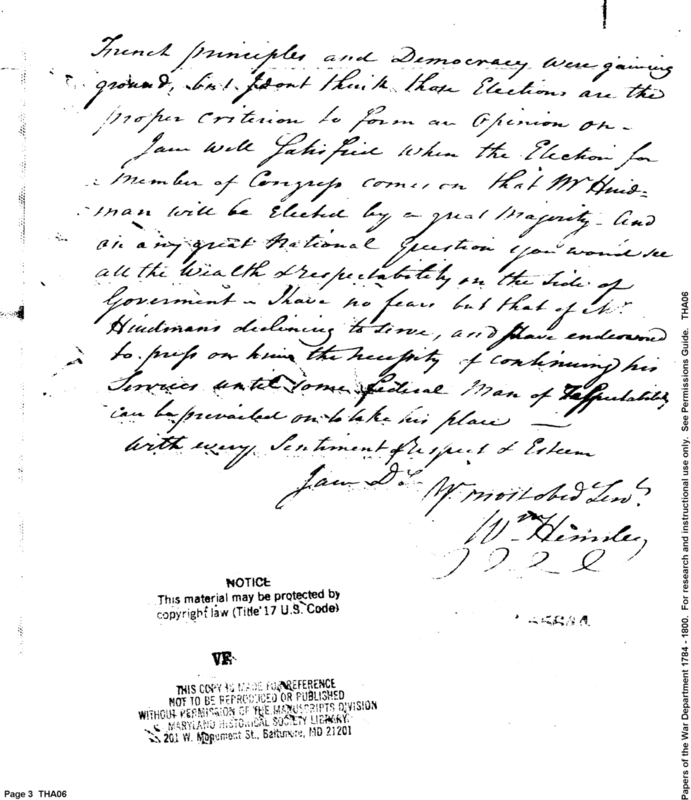 French principles and Democracy were gaining
ground, but I dont think those Elections are the
proper criterion to form an Opinion on -
I am well Satisfied when the Election for
member of Congress comes on that Mr. Hind=
man will be Elected by a great Majority - And
on any great National Question you would see
all the Wealth & respectability on the Side of
Goverment - I have no fears but that of Mr.
Hindmans declining to serve, and I have endeavord
to press on him the necessity of continuing his
Services until some Federal Man of Respectability
can be prevailed on to take his place —
with every Sentiment of Respect & Esteem
I am Dr Sr Yr. most obed Servt.
Wm Hemsley
NOTICE
This material may be protected by
copyright law (Title 17 U.S. Code)
THIS COPY IS MADE FOR REFERENCE
NOT TO BE REPRODUCED OR PUBLISHED
WITHOUT PERMISSION OF THE MANUSCRIPTS DIVISION
MARYLAND HISTORICAL SOCIETY LIBRARY.
201 W. Monument St., Baltimore, MD 21201
Page 3 THA06
Papers of the War Department 1784 - 1800. For research and instructional use only. See Permissions Guide. THA06